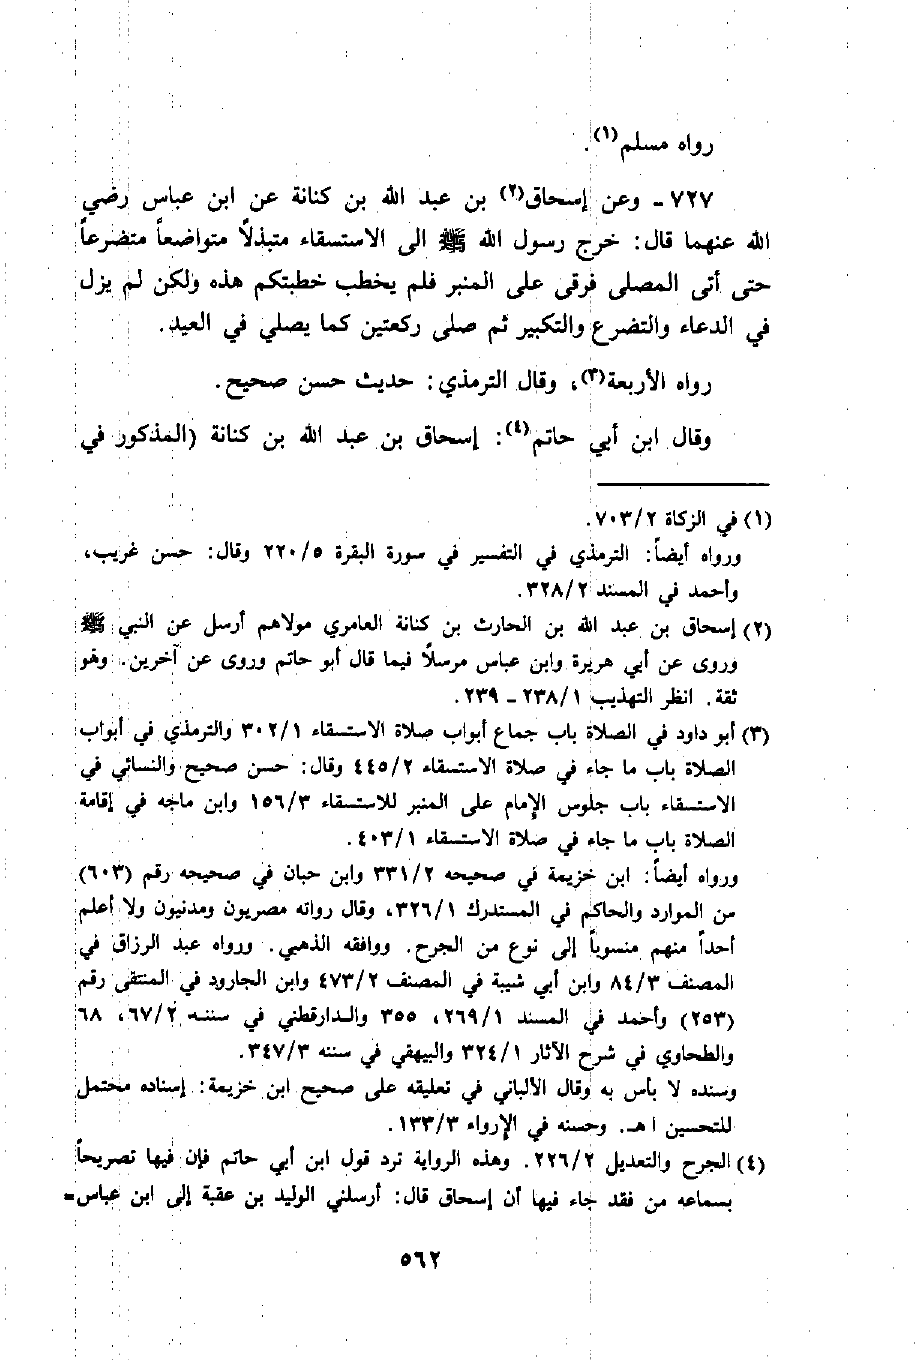 رواه مسلم(١).
٧٢٧ ـ وعن إسحاق(٢) بن عبد الله بن كنانة عن ابن عباس رضي
الله عنهما قال: خرج رسول الله ﷺ الى الاستسقاء متبذلاً متواضعاً متضرعاً
حتى أتى المصلى فرقى على المنبر فلم يخطب خطبتكم هذه ولكن لم يزل
في الدعاء والتضرع والتكبير ثم صلى ركعتين كما يصلي في العيد.
رواه الأربعة(٣)، وقال الترمذي: حديث حسن صحيح.
وقال ابن أبي حاتم(٤): إسحاق بن عبد الله بن كنانة (المذكور في
(١) في الزكاة ٧٠٣/٢.
ورواه أيضاً: الترمذي في التفسير في سورة البقرة ٢٢٠/٥ وقال: حسن غريب،
وأحمد في المسند ٣٢٨/٢.
(٢) إسحاق بن عبد الله بن الحارث بن كنانة العامري مولاهم أرسل عن النبي ﷺ
وروى عن أبي هريرة وابن عباس مرسلاً فيما قال أبو حاتم وروى عن آخرين. وهو
ثقة. انظر التهذيب ٢٣٨/١ ـ ٢٣٩.
(٣) أبو داود في الصلاة باب جماع أبواب صلاة الاستسقاء ٣٠٢/١ والترمذي في أبواب
الصلاة باب ما جاء في صلاة الاستسقاء ٤٤٥/٢ وقال: حسن صحيح والنسائي في
الاستسقاء باب جلوس الإمام على المنبر للاستسقاء ١٥٦/٣ وابن ماجه في إقامة
الصلاة باب ما جاء في صلاة الاستسقاء ٤٠٣/١.
ورواه أيضاً: ابن خزيمة في صحيحه ٣٣١/٢ وابن حبان في صحيحه رقم (٦٠٣)
من الموارد والحاكم في المستدرك ٣٢٦/١، وقال رواته مصريون ومدنيون ولا أعلم
أحداً منهم منسوباً إلى نوع من الجرح. ووافقه الذهبي. ورواه عبد الرزاق في
المصنف ٨٤/٣ وابن أبي شيبة في المصنف ٤٧٣/٢ وابن الجارود في المنتقى رقم
(٢٥٣) وأحمد في المسند ٢٦٩/١، ٣٥٥ والدارقطني في سننه ٦٧/٢، ٦٨
والطحاوي في شرح الآثار ٣٢٤/١ والبيهقي في سننه ٣٤٧/٣.
وسنده لا بأس به وقال الألباني في تعليقه على صحيح ابن خزيمة: إسناده محتمل
للتحسين اهـ. وحسنه في الإرواء ١٣٣/٣.
(٤) الجرح والتعديل ٢٢٦/٢. وهذه الرواية ترد قول ابن أبي حاتم فإن فيها تصريحاً
بسماعه من فقد جاء فيها أن إسحاق قال: أرسلني الوليد بن عقبة إلى ابن عباس=
٥٦٢